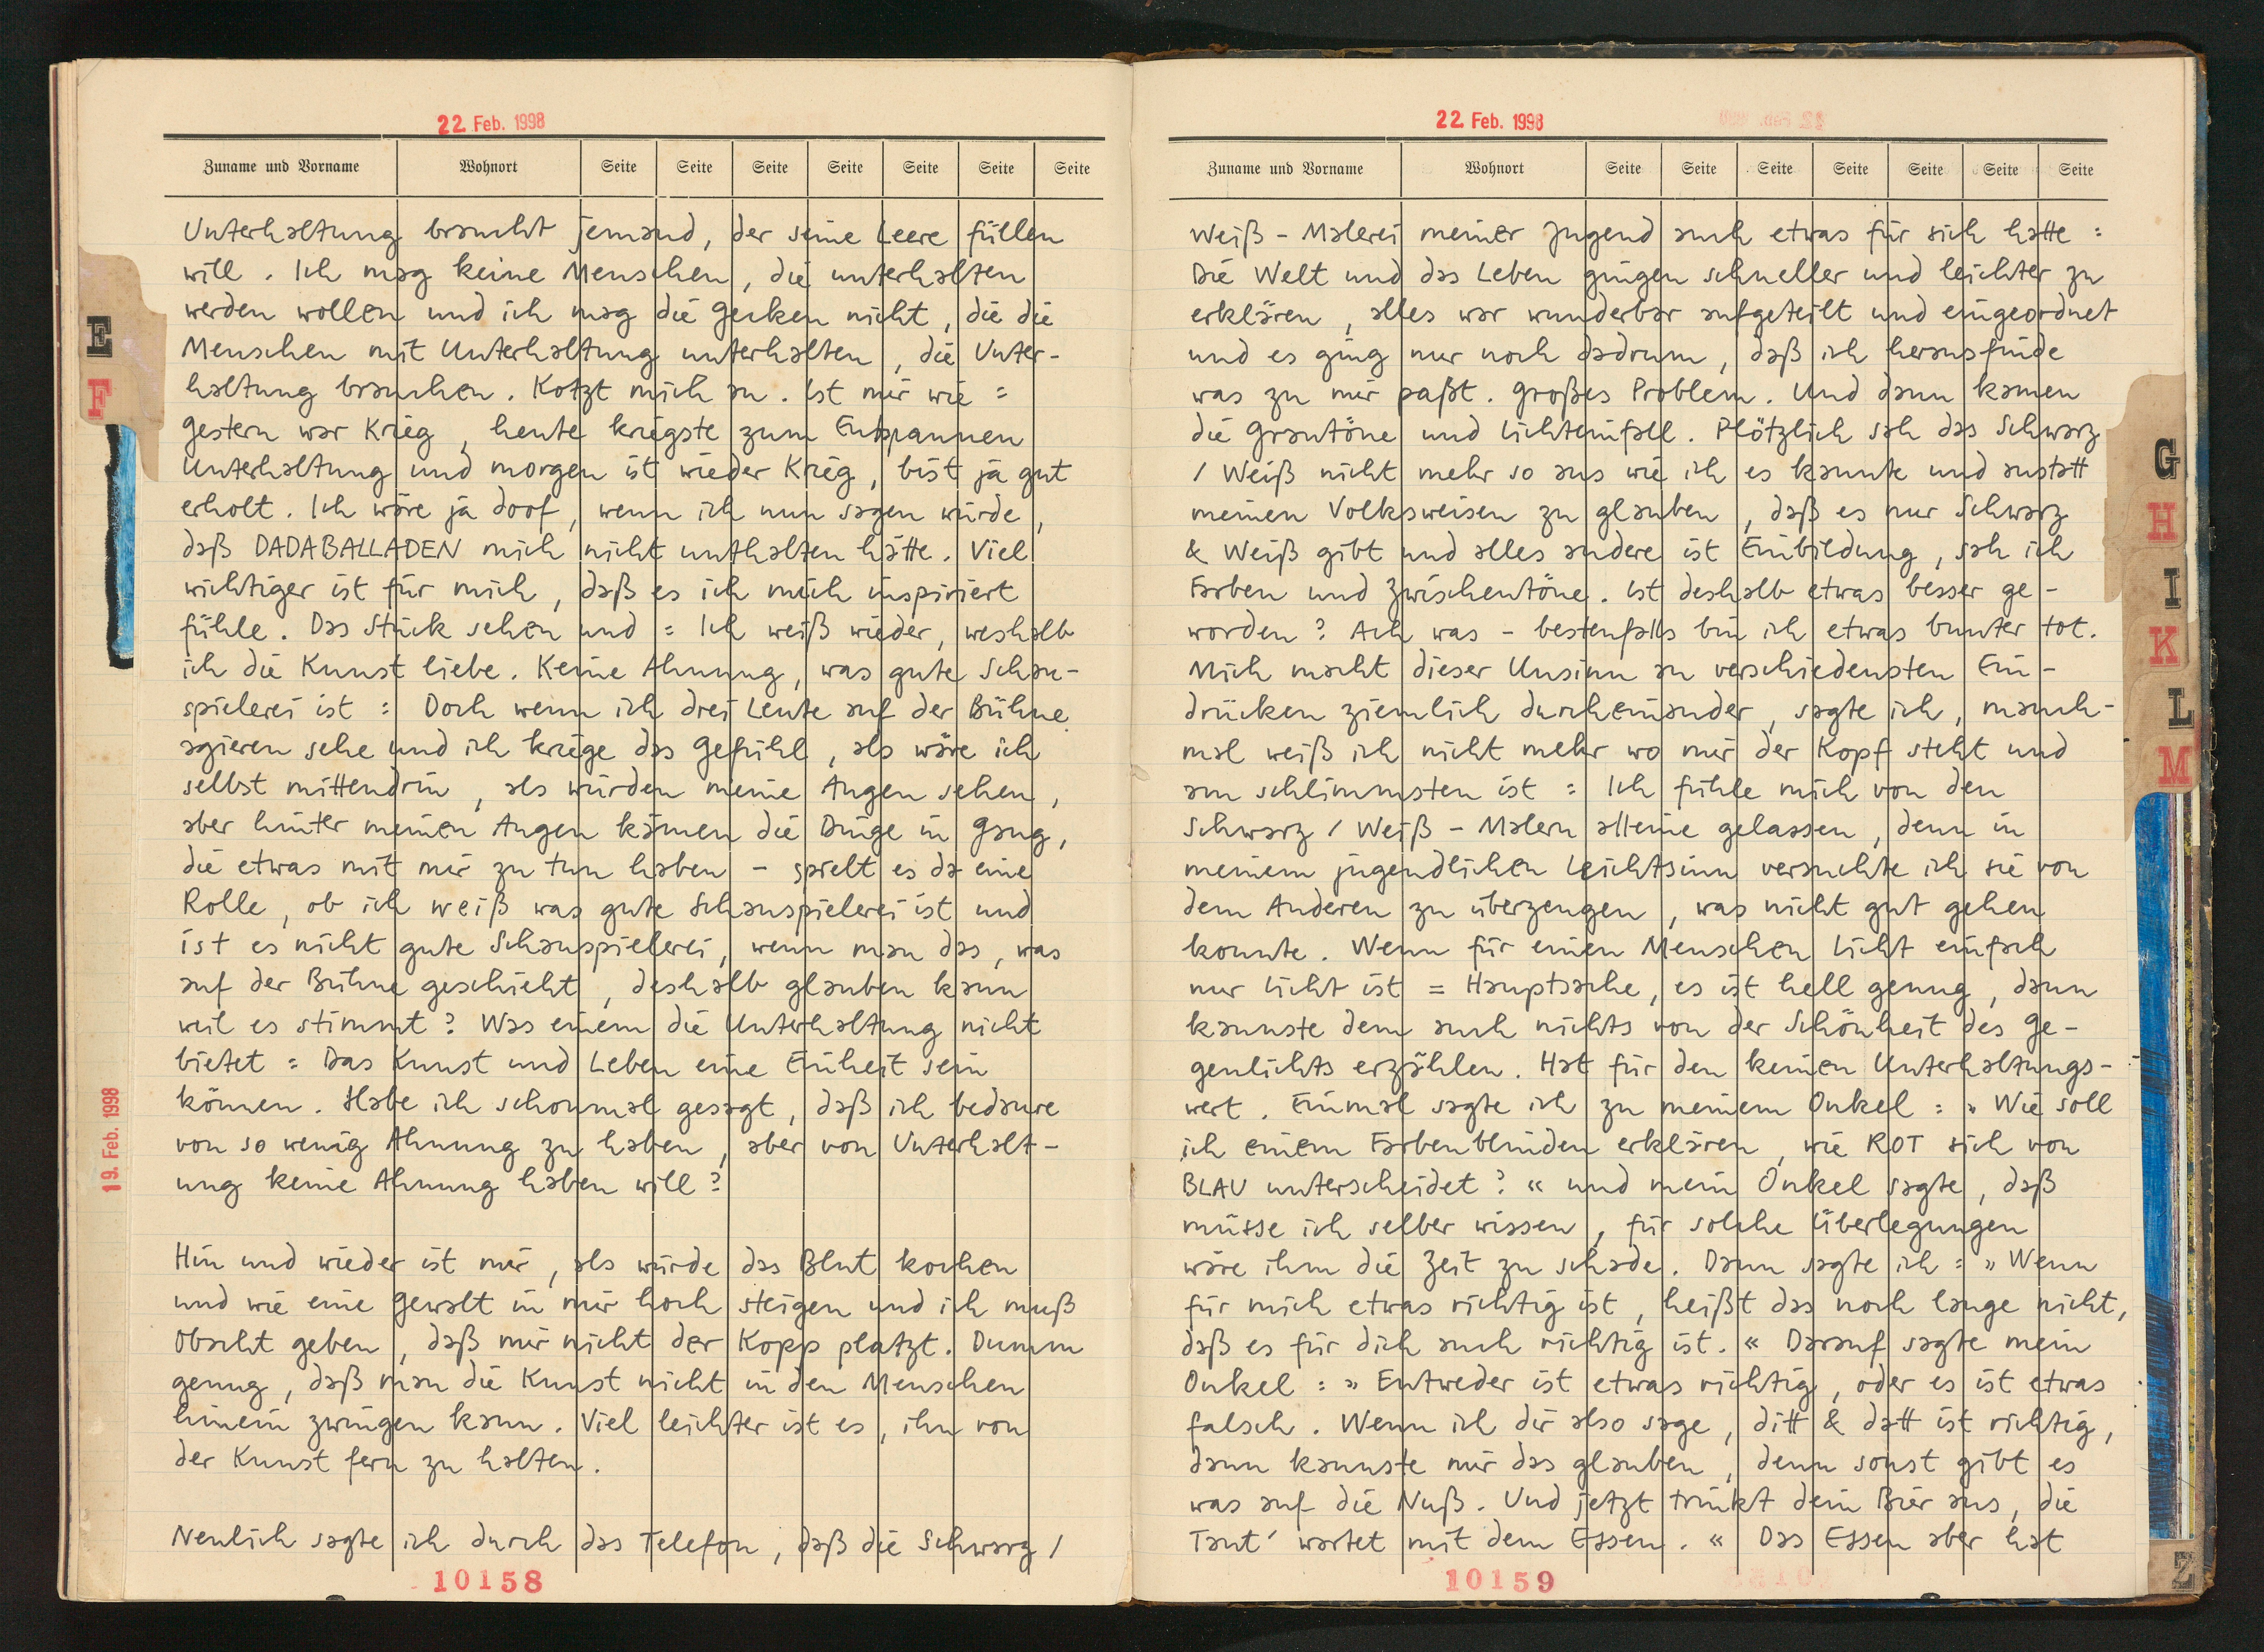 22 Feb. 1998
Zuname und Vorname Wohnort Seite Seite Seite Seite Seite Seite Seite
Unterhaltung braucht jemand, der seine Leere füllen
will. Ich mag keine Menschen, die unterhalten
werden wollen und ich mag die Gecken nicht, die die
Menschen mit Unterhaltung unterhalten, die Unter-
haltung brauchen. Kotzt mich an. Ist mir wie =
Gestern war Krieg, heute kriegste zum Entspannen
Unterhaltung und morgen ist wieder Krieg, bist ja gut
erholt. Ich wäre ja doof, wenn ich nun sagen würde,
daß DADABALLADEN mich nicht unthalten hätte. Viel
wichtiger ist für mich, daß es ich mich inspiriert
fühle. Das Stück sehen und = Ich weiß wieder, weshalb
ich die Kunst liebe. Keine Ahnung, was gute Schau-
spielerei ist : Doch wenn ich drei Leute auf der Bühne
agieren sehe und ich kriege das Gefühl, als wäre ich
selbst mittendrin, als würden meine Augen sehen,
aber hinter meinen Augen kämen die Dinge in Gang,
die etwas mit mir zu tun haben – spielt es da eine
Rolle, ob ich weiß was gute Schauspielerei ist und
ist es nicht gute Schauspielerei, wenn man das, was
auf der Bühne geschieht, deshalb glauben kann
weil es stimmt? Was einem die Unterhaltung nicht
bietet = Das Kunst und Leben eine Einheit sein
können. Habe ich schonmal gesagt, daß ich bedaure
von so wenig Ahnung zu haben, aber von Unterhalt-
ung keine Ahnung haben will?
Hin und wieder ist mir, als würde das Blut kochen
und wie eine Gewalt in mir hoch steigen und ich muß
Obacht geben, daß mir nicht der Kopp platzt. Dumm
genug, daß man die Kunst nicht in den Menschen
hinein zwingen kann. Viel leichter ist es, ihn von
der Kunst fern zu halten.
Neulich sagte ich durch das Telefon, daß die Schwarz /
10158
E
F
19. Feb. 1998
22 Feb. 1998
Zuname und Vorname Wohnort Seite Seite Seite Seite Seite Seite Seite
Weiß – Malerei meiner Jugend auch etwas für sich hatte :
Die Welt und das Leben gingen schneller und leichter zu
erklären, alles war wunderbar aufgeteilt und eingeordnet
und es ging nur noch dadrum, daß ich herausfinde
was zu mir paßt. Großes Problem. Und dann kamen
die Grautöne und Lichteinfall. Plötzlich sah das Schwarz
/ Weiß nicht mehr so aus wie ich es kannte und anstatt
meinen Volksweisen zu glauben, daß es nur Schwarz
& Weiß gibt und alles andere ist Einbildung, sah ich
Farben und Zwischentöne. Ist deshalb etwas besser ge-
worden? Ach was – bestenfalls bin ich etwas bunter tot.
Mich macht dieser Unsinn an verschiedensten Ein-
drücken ziemlich durcheinander, sagte ich, manch-
mal weiß ich nicht mehr wo mir der Kopf steht und
am schlimmsten ist : Ich fühle mich von den
Schwarz / Weiß – Malern alleine gelassen, denn in
meinem jugendlichen Leichtsinn versuchte ich sie von
dem Anderen zu überzeugen, was nicht gut gehen
konnte. Wenn für einen Menschen Licht einfach
nur Licht ist = Hauptsache, es ist hell genug, dann
kannste dem auch nichts von der Schönheit des Ge-
genlichts erzählen. Hat für den keinen Unterhaltungs-
wert. Einmal sagte ich zu meinem Onkel : » Wie soll
ich einem Farbenblinden erklären, wie ROT sich von
BLAU unterscheidet? « und mein Onkel sagte, daß
müsse ich selber wissen, für solche Überlegungen
wäre ihm die Zeit zu schade. Dann sagte ich : » Wenn
für mich etwas richtig ist, heißt das noch lange nicht,
daß es für dich auch richtig ist. « Darauf sagte mein
Onkel : » Entweder ist etwas richtig, oder es ist etwas
falsch. Wenn ich dir also sage, ditt & datt ist richtig,
dann kannste mir das glauben, denn sonst gibt es
was auf die Nuß. Und jetzt trinkt dein Bier aus, die
Tant' wartet mit dem Essen. « Das Essen aber hat
10159
G
H
I
K
L
M
Z